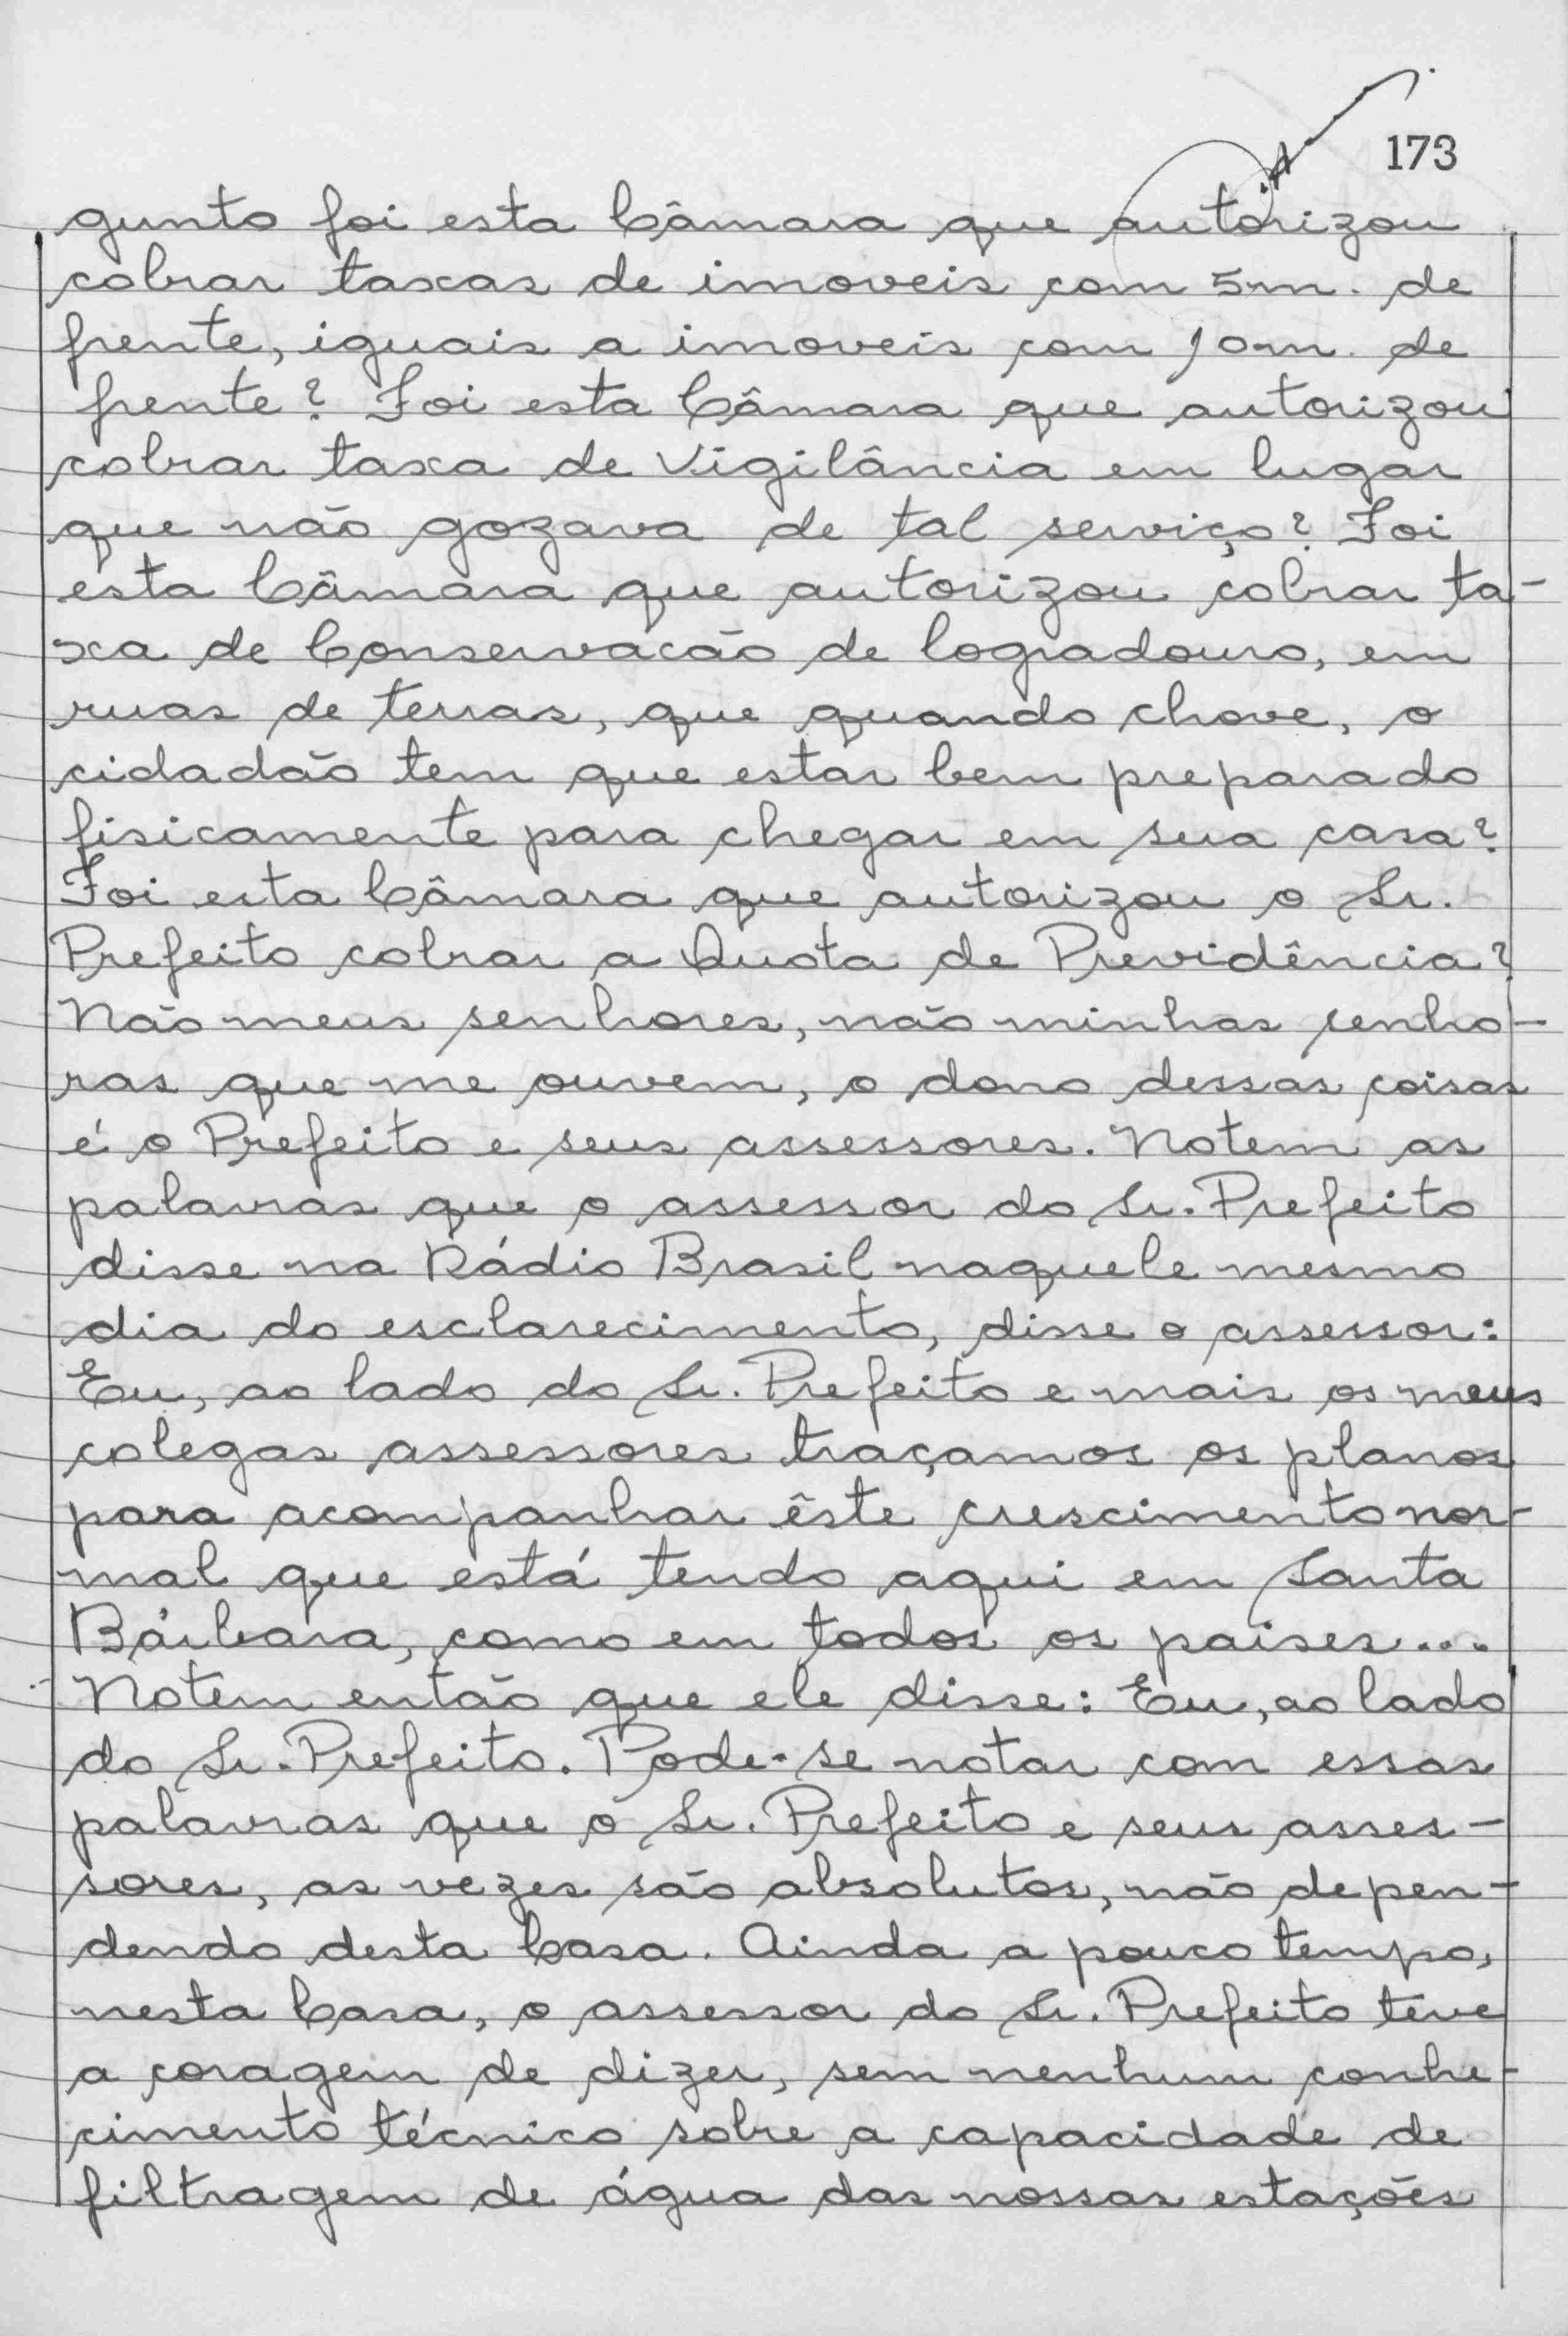 173
gunto foi esta Câmara que autorizou
cobrar taxas de imoveis com 5m. de
frente, iguais a imoveis com 10m. de
frente? Foi esta Câmara que autorizou
cobrar taxa de Vigilância em lugar
que não gozava de tal serviço? Foi
esta Câmara que autorizou cobrar ta-
xa de Conservacão de logradouro, em
ruas de terras, que quando chove, o
cidadão tem que estar bem preparado
fisicamente para chegar em sua casa?
Foi esta Câmara que autorizou o Sr.
Prefeito cobrar a Quota de Previdência?
Não meus senhores, não minhas senho-
ras que me ouvem, o dono dessas coisas
é o Prefeito e seus assessores. Notem as
palavras que o assessor do Sr. Prefeito
disse na Rádio Brasil naquele mesmo
dia do esclarecimento, disse o assessor:
Eu, ao lado do Sr. Prefeito e mais os meus
colegas assessores traçamos os planos
para acompanhar êste crescimento nor-
mal que está tendo aqui em Santa
Bárbara, como em todos os paises...
Notem então que ele disse: Eu, ao lado
do Sr. Prefeito. Pode-se notar com essas
palavras que o Sr. Prefeito e seus asses-
sores, as vezes são absolutos, não depen-
dendo desta Casa. Ainda a pouco tempo,
nesta Casa, o assessor do Sr. Prefeito teve
a coragem de dizer, sem nenhum conhe-
cimento técnico sobre a capacidade de
filtragem de água das nossas estações